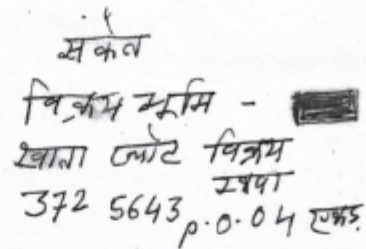 संकेत
विक्रय भूमि -
खाता प्लॉट विक्रय
रकवा
372 5643 p.0.04 एकड़